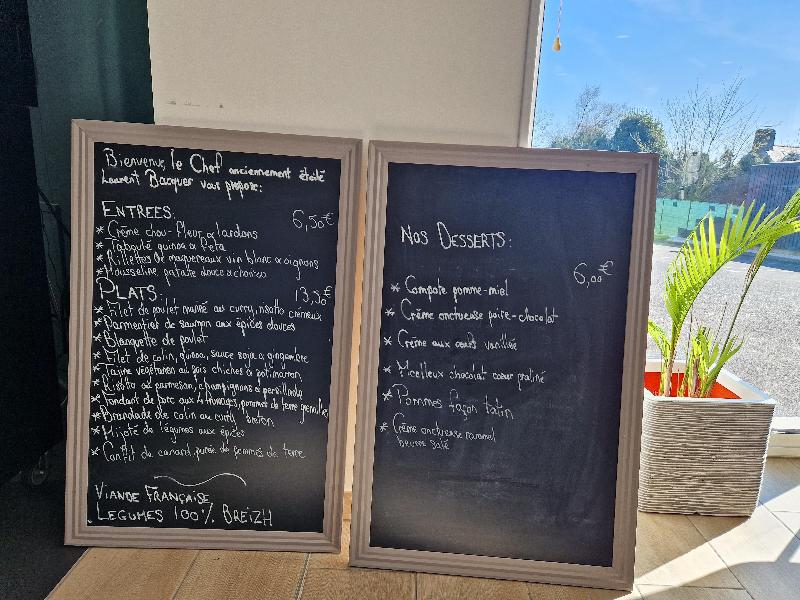 Bienvenus, le Chef anciennement étoilé
Laurent Bacquer vous propose:
ENTREES: 6,50€
* Crème chou-fleur & lardons
* Taboulé quinoa & feta
* Rillettes de maquereaux vin blanc & oignons
* Mousseline patate douce & chorizo
PLATS: 13,50€
* Filet de poulet mariné au curry, risotto crémeux
* Parmentier de saumon aux épices douces
* Blanquette de poulet
* Filet de colin, quinoa, sauce soja & gingembre
* Tajine végétarien aux pois chiches & potimarron
* Risotto au parmesan, champignons & persillade
* Fondant de porc aux 4 fromages, pommes de terre grenaille
* Brandade de colin au curry breton
* Mijoté de légumes aux épices
* Confit de canard, purée de pommes de terre
VIANDE FRANÇAISE
LEGUMES 100% BREIZH
NOS DESSERTS:
6,00€
* Compote pomme-miel
* Crème onctueuse poire-chocolat
* Crème aux oeufs vanillée
* Moelleux chocolat cœur praliné
* Pommes façon tatin
* Crème onctueuse caramel
beurre salé